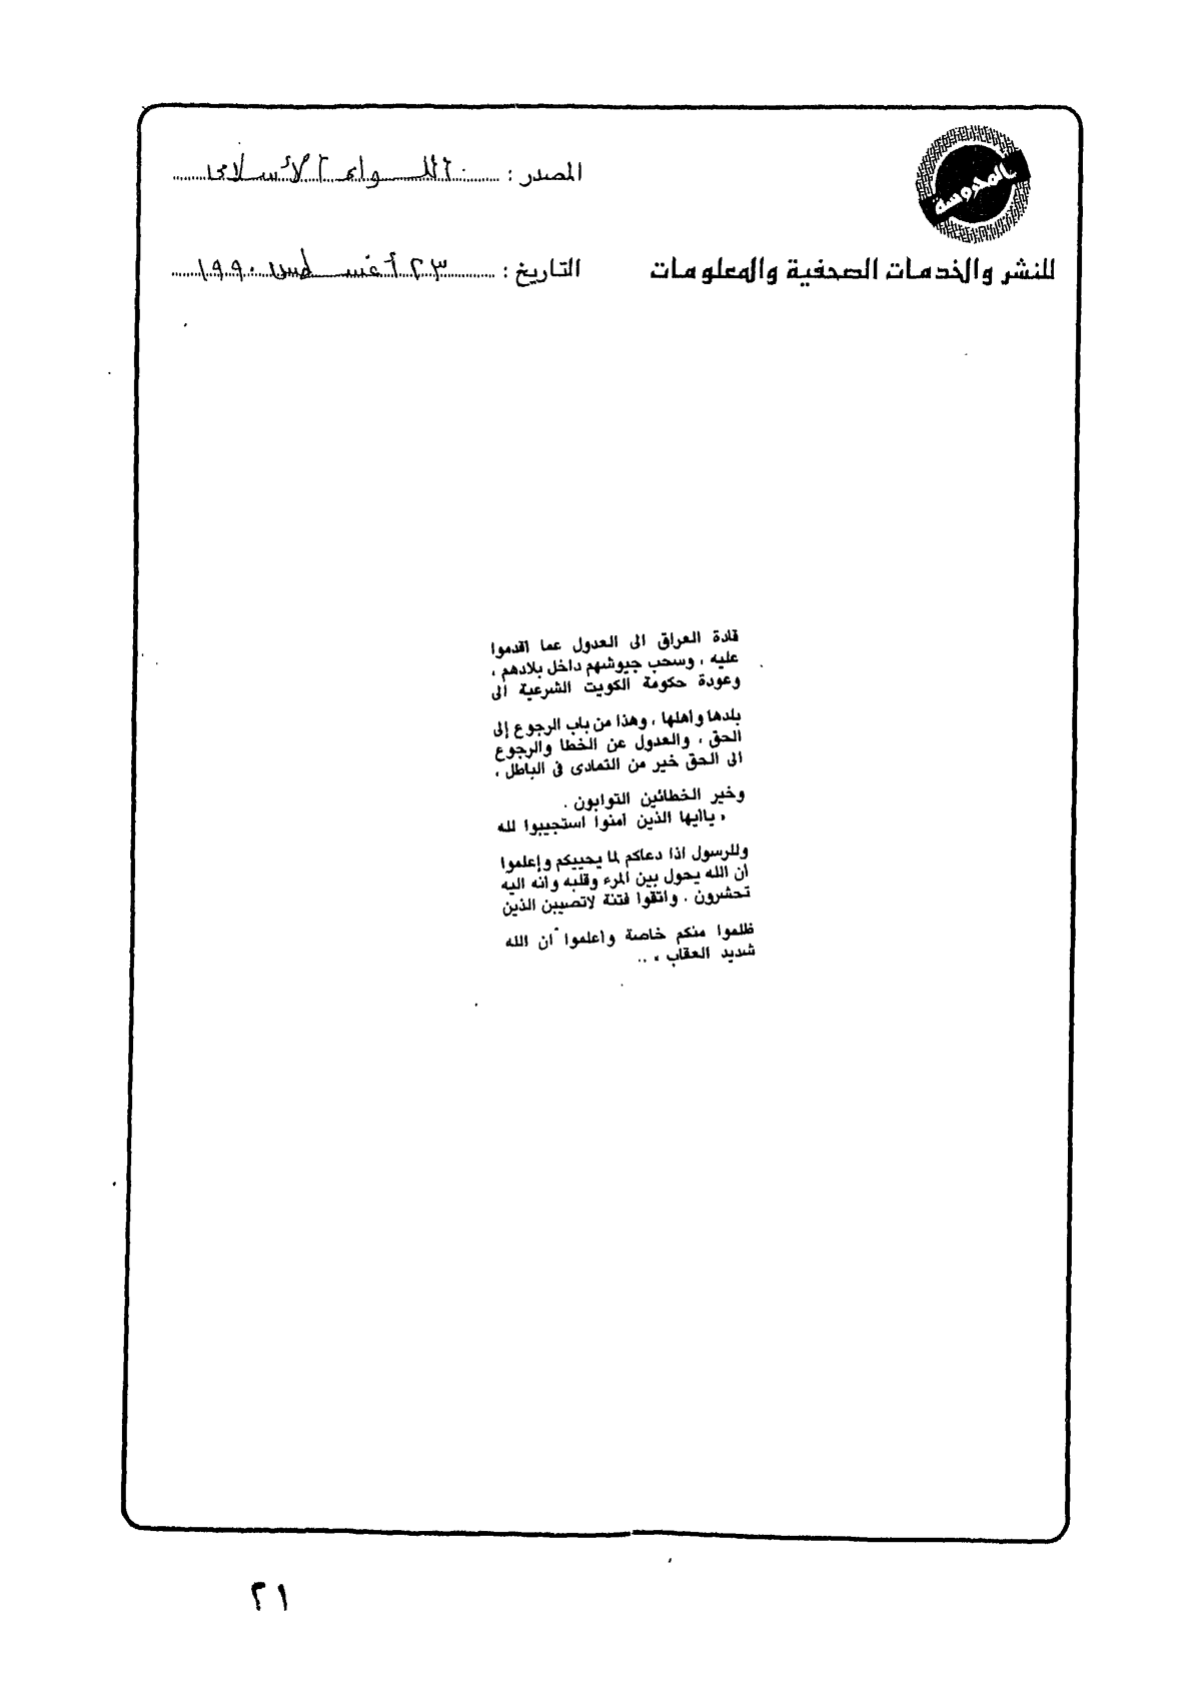 المحروسة
للنشر والخدمات الصحفية والمعلومات
المصدر : اللواء الأسلامى
التاريخ : ٢٣ أغسطس ١٩٩٠
قادة العراق الى العدول عما اقدموا
عليه ، وسحب جيوشهم داخل بلادهم ،
وعودة حكومة الكويت الشرعية الى
بلدها واهلها ، وهذا من باب الرجوع إلى
الحق ، والعدول عن الخطا والرجوع
الى الحق خير من التمادى فى الباطل ،
وخير الخطائين التوابون .
« ياايها الذين امنوا استجيبوا لله
وللرسول اذا دعاكم لما يحييكم وإعلموا
ان الله يحول بين المرء وقلبه وانه اليه
تحشرون . واتقوا فتنة لاتصيبن الذين
ظلموا منكم خاصة واعلموا أن الله
شديد العقاب » ..
٢١